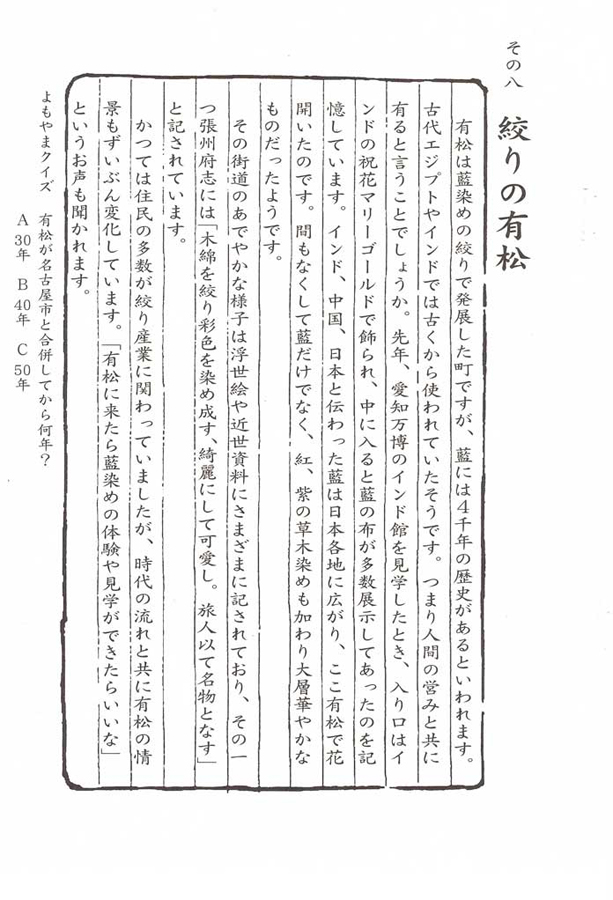 その八
絞りの有松
有松は藍染めの絞りで発展した町ですが、藍には4千年の歴史があるといわれます。
古代エジプトやインドでは古くから使われていたそうです。つまり人間の営みと共に
有ると言うことでしょうか。先年、愛知万博のインド館を見学したとき、入り口はイ
ンドの祝花マリーゴールドで飾られ、中に入ると藍の布が多数展示してあったのを記
憶しています。インド、中国、日本と伝わった藍は日本各地に広がり、ここ有松で花
開いたのです。間もなくして藍だけでなく、紅、紫の草木染めも加わり大層華やかな
ものだったようです。
その街道のあでやかな様子は浮世絵や近世資料にさまざまに記されており、その一
つ張州府志には「木綿を絞り彩色を染め成す、綺麗にして可愛し。旅人以て名物となす」
と記されています。
かつては住民の多数が絞り産業に関わっていましたが、時代の流れと共に有松の情
景もずいぶん変化しています。「有松に来たら藍染めの体験や見学ができたらいいな」
というお声も聞かれます。
よもやまクイズ 有松が名古屋市と合併してから何年？
A 30年 B 40年 C 50年